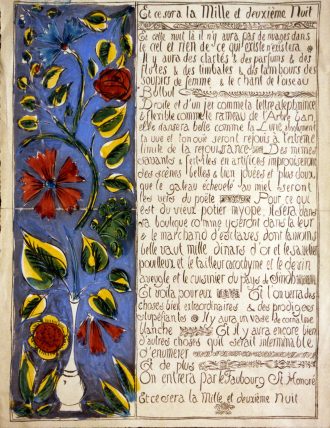 Et ce sera la Mille et deuxième Nuit
Et cette nuit là il n'y aura pas de nuages dans
le ciel et rien de ce qui existe n'existera
Il y aura des clartés & des parfums & des
flûtes & des timbales & des tambours des
soupirs de femme & le chant de l'oiseau
Bülbül
Droite et d'un jet comme la lettre aleph mince
& flexible comme le rameau de l'Arbre
elle dansera belle comme la Lune absolument
la vue et l'ouïe seront réjouis à l'extrême
limite de la réjouissance Des mimes
& fertiles en artifices improviseront
des scènes belles & bien jouées et plus doux
que le gâteau échevelé au miel seront
les vers du poète Pour ce qui
est du vieux potier myope il sera dans
sa boutique comme y seront dans la leur
& le marchand d'esclaves dont la moins
belle vaut mille dinars d'or et le
pouilleux et le tailleur cacochyme et le devin
aveugle et le cuisinier du pays de
Et voilà pour eux Et l'on verra des
choses bien extraordinaires & des prodiges
stupéfiants Il y aura un vase de cornaline
blanche Et il y aura encore bien
d'autres choses qu'il serait interminable
d'énumérer
Et de plus
On entrera par le Faubourg St Honoré
Et ce sera la Mille et deuxième Nuit